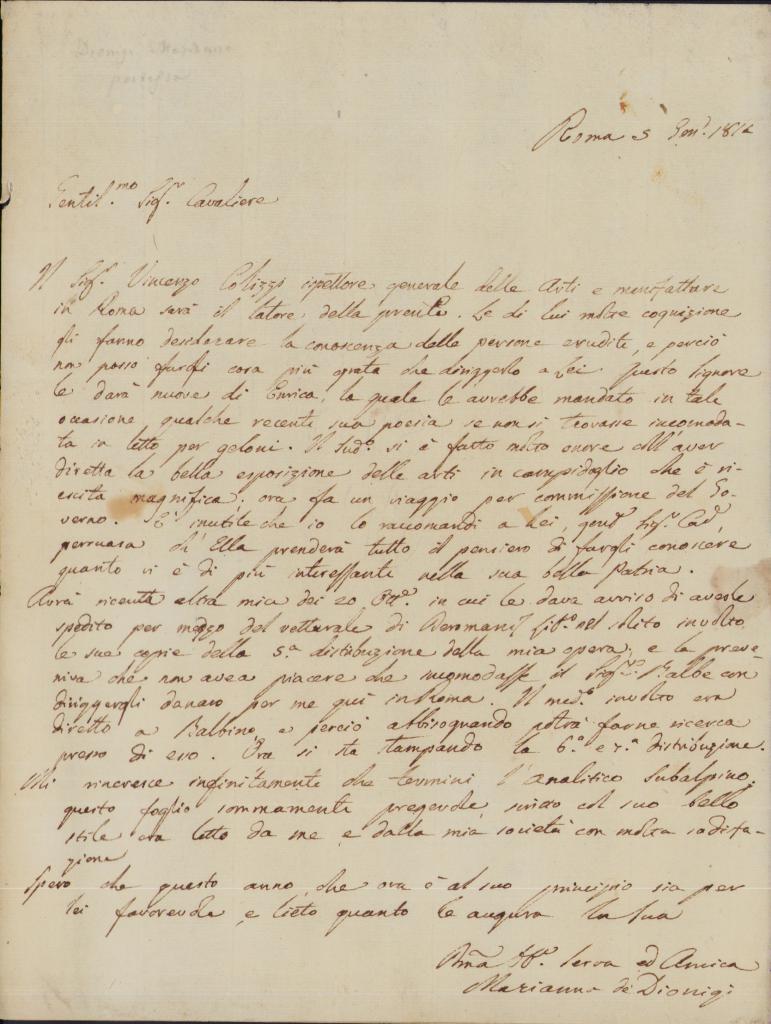 Dionigi Marianna
Roma 5 Gen.º 1812
Gentil.mo Sig.r Cavaliere
Il Sig.r Vincenzo Colizzi ispettore generale delle Arti e manifatture
in Roma sarà il latore della presente. Le di lui molte cognizione
gli fanno desiderare la conoscenza delle persone erudite, e perciò
non posso fargli cosa più grata che diriggerlo a Lei. Questo Signore
le darà nuove di Enrica, la quale le avrebbe mandato in tale
occasione qualche recente sua poesia se non si trovasse incomoda-
ta in letto per geloni. Il Sud.º si è fatto molto onore coll'aver
diretta la bella esposizione delle arti in campidoglio che è ri-
escita magnifica. ora fa un viaggio per commissione del Go-
verno. È inutile che io lo raccomandi a Lei, Sig.r Cav.
persuasa ch'Ella prenderà tutto il pensiero di fargli conoscere
quanto vi è di più interessante nella sua bella Patria.
Avrà ricevuta altra mia dei 20 in cui le dava avviso di averle
spedito per mezzo del vetturale di nel solito involto
le sue copie della 5.a distribuzione della mia opera, e la preve-
niva che non avea piacere che incomodasse il Sig.r Balbe con
diriggergli danaro per me qui in Roma. Il med.º involto era
diretto a Balbino, e perciò abbisognando potrà farne ricerca
presso di esso. Ora si sta stampando la 6.a e 7.a distribuzione.
Mi rincresce infinitamente che termini l'analitico Subalpino.
questo foglio sommamente pregevole, scritto col suo bello
stile era letto da me, e dalla mia società con molta sodisfa-
zione
Spero che questo anno, che ora è al suo principio sia per
lei favorevole, e lieto quanto le augura la sua
Serva ed Amica
Marianna de Dionigi